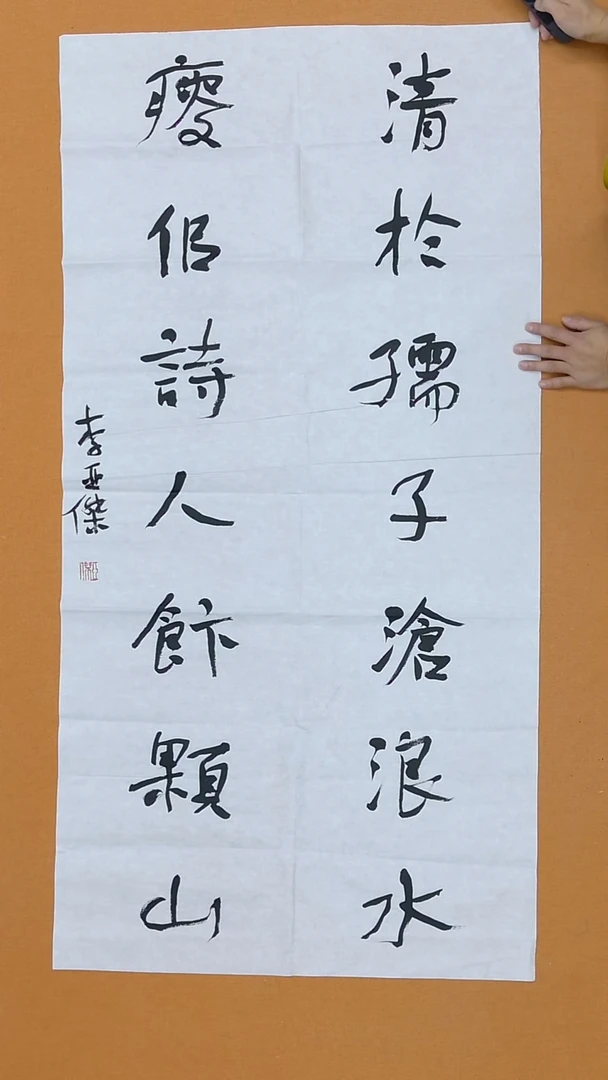 清於孺子滄浪水
瘦佀詩人飰顆山
李亞傑